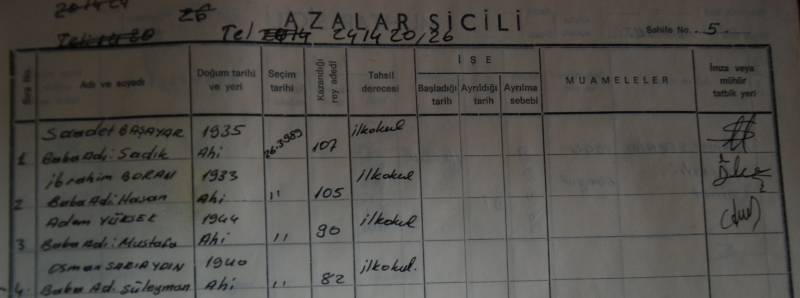 201424 26
AZALAR SİCİLİ
Tel: 1420 Tel 2414 2414 20/26 Sahife No. 5
Sıra No. Adı ve soyadı Doğum tarihi ve yeri Seçim tarihi Kazandığı rey adedi Tahsil derecesi İŞE Başladığı tarih Ayrıldığı tarih Ayrılma sebebi MUAMELELER İmza veya mühür tatbik yeri
Saadet BAŞAYAR 1935 ilkokul
1 Baba Adı: Sadık Ahi 26.3989 107
İbrahim BORAN 1933 ilkokul
2 Baba Adı Hasan Ahi " 105
Adem YÜKSEK 1944 ilkokul
3 Baba Adı: Mustafa Ahi " 90
Osman SARIAYDIN 1940 ilkokul.
4 Baba Ad. Süleyman Ahi " 82